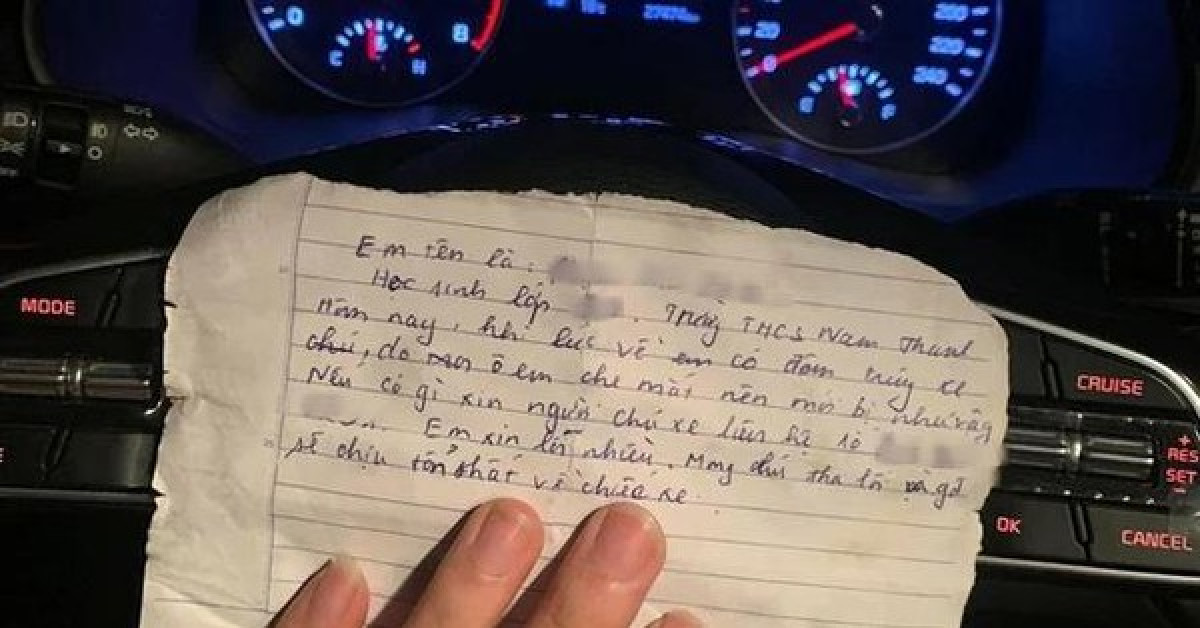 0
8
C
H
20
0
200
220
240
F
MODE
CRUISE
+
RES
SET
-
OK
CANCEL
Em tên là:
Học sinh lớp . Trường THCS Nam Thanh
Hôm nay, khi lúc về em có đâm trúng xe
chú, do ô em che mất nên mới bị như vậy
Nếu có gì xin người chủ xe liên hệ số
Em xin lỗi nhiều. Mong chú tha lỗi và gđ
sẽ chịu tổn thất về chiếc xe.